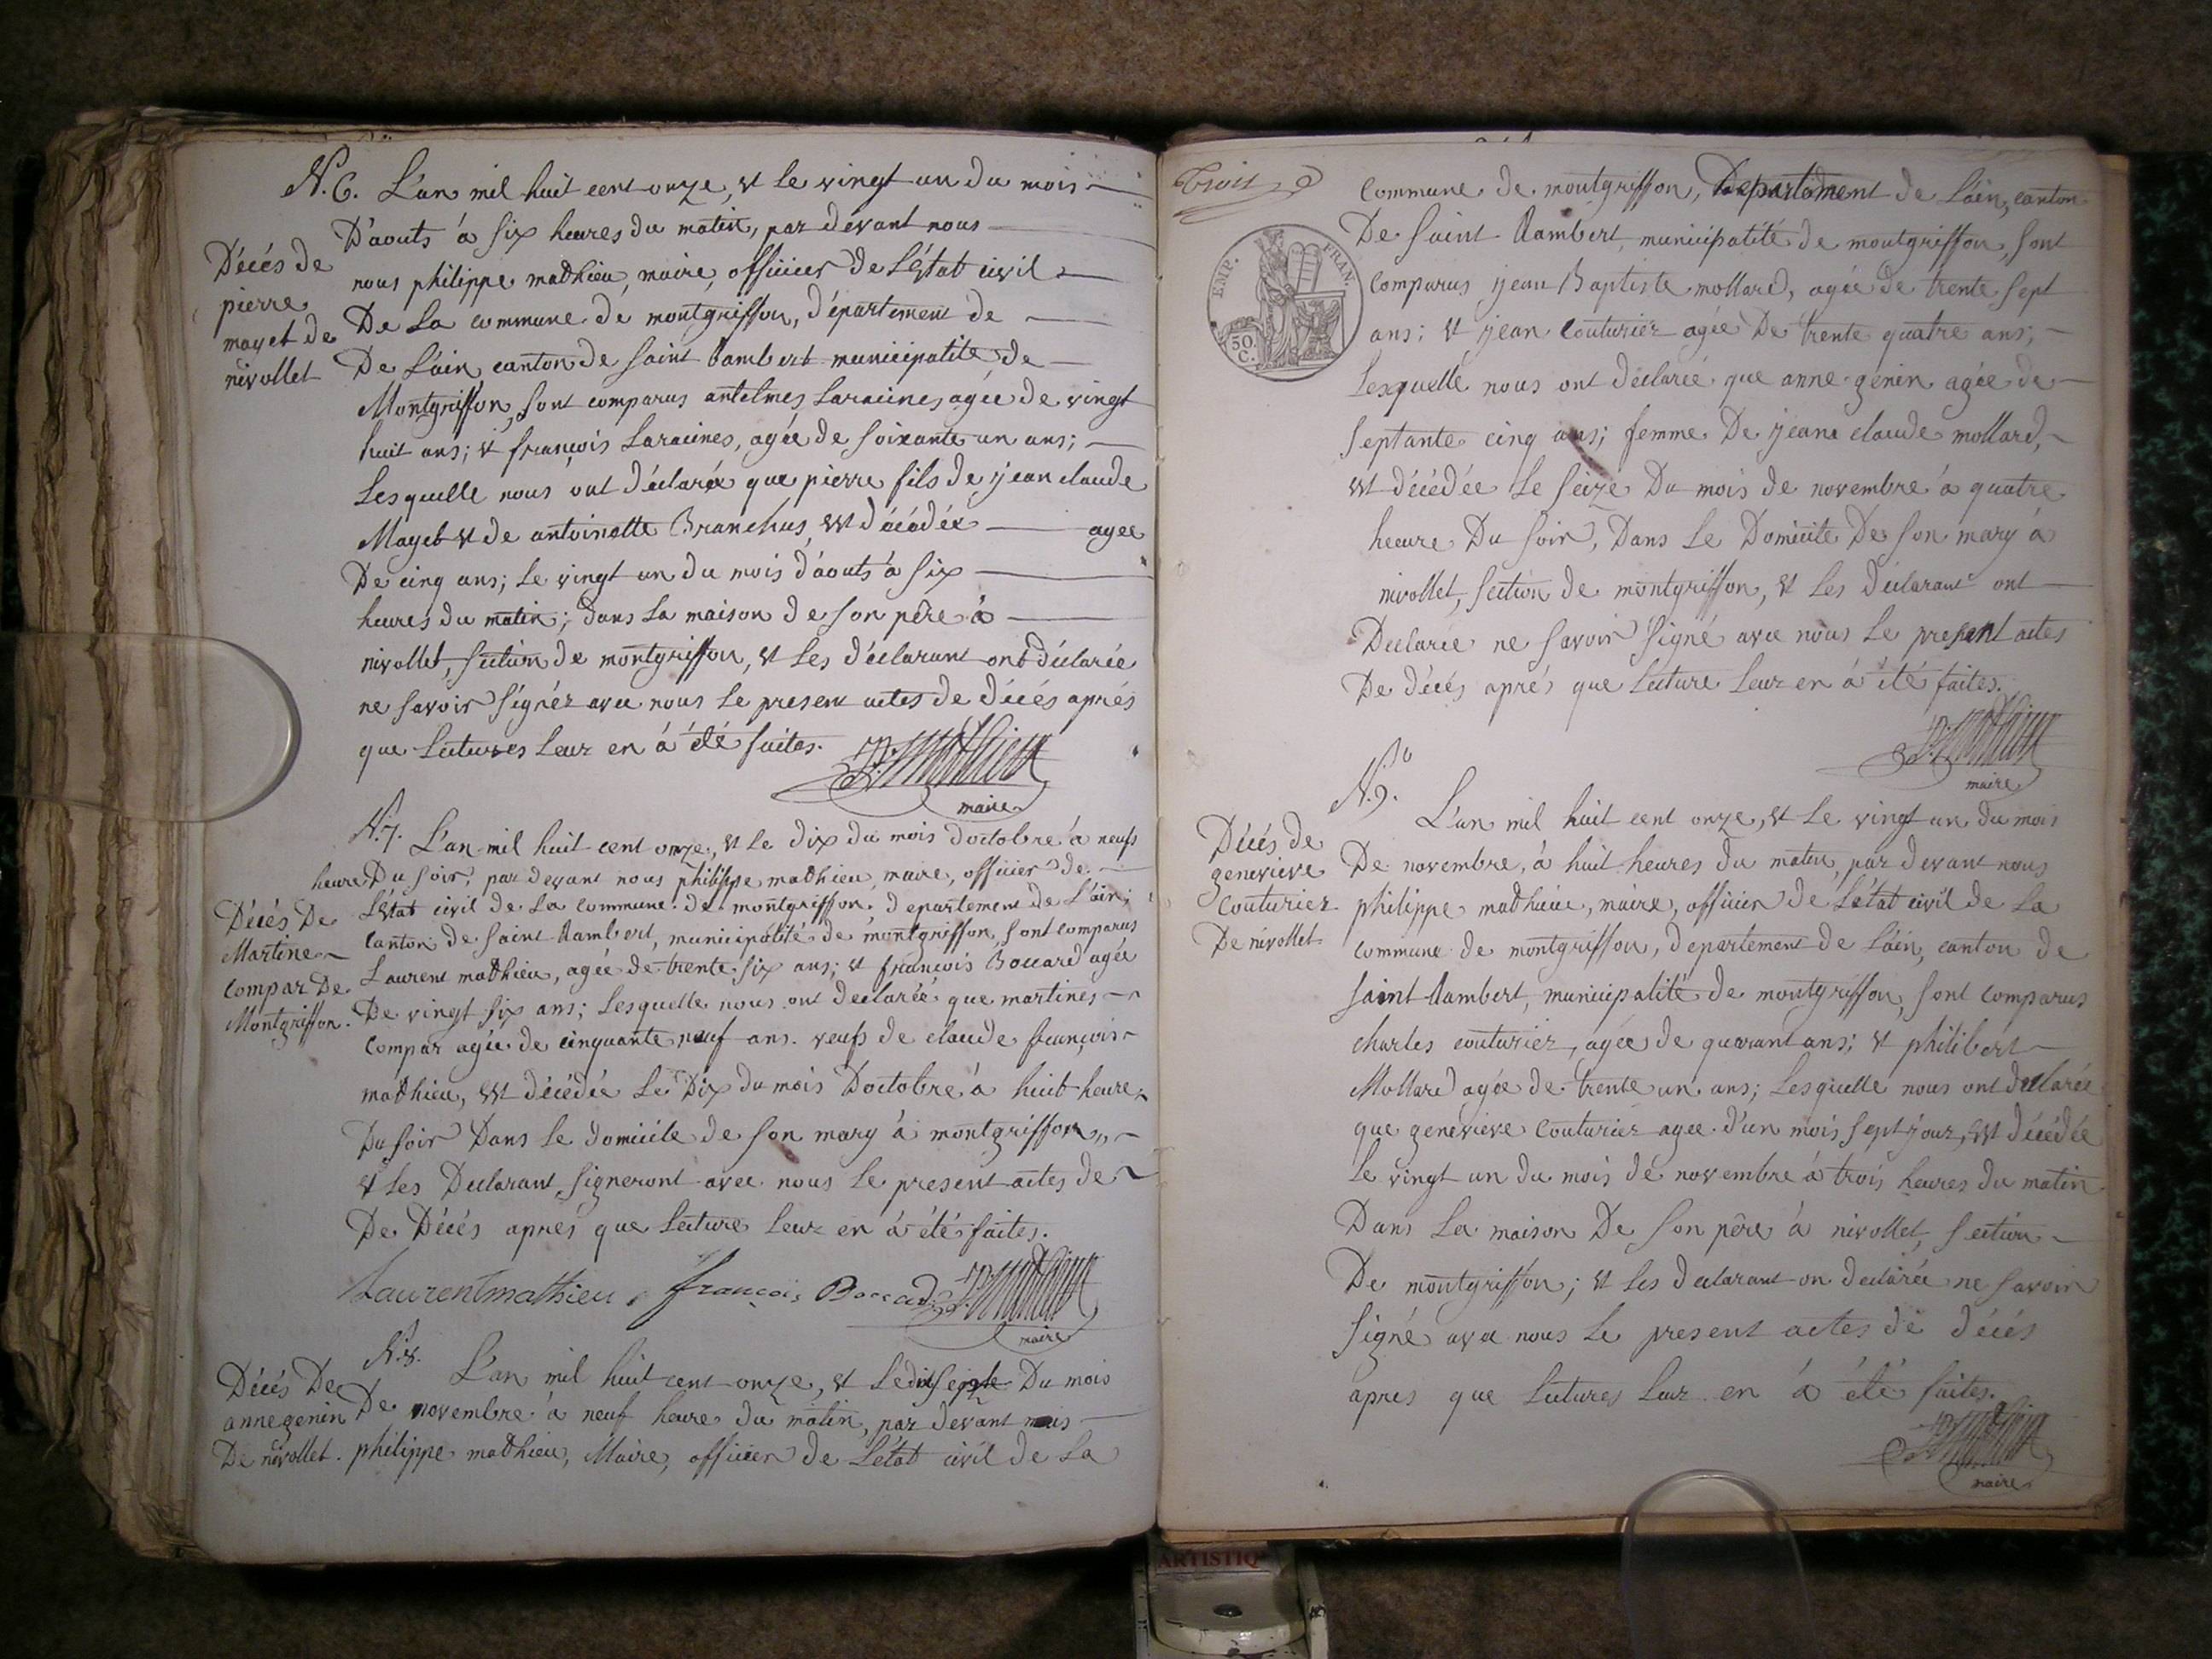 N.6. L'an mil huit cent onze, et le vingt un du mois
D'aouts à six heures du matin, par devant nous
nous philippe mathieu, maire, officier de L'Etat civil
De La commune de montgriffon, département de
De L'ain, canton de saint Rambert municipalité de
Montgriffon, sont comparus antelmes Laracines agée de vingt
huit ans; et françois Laracines, agée de soixante un ans;
Lesquelle nous ont déclarée que pierre fils de jean claude
Mayet et de antoinette Branchus, est décédée agee
De cinq ans; Le vingt un du mois d'aouts à six
heures du matin; dans La maison de son père à
nivollet, section de montgriffon, et Les déclarant ont déclarée
ne savoir signéz avec nous Le present actes de décés aprés
que Lectures Leur en à été faites.
P. Mathieu
maire
Décés de
pierre
mayet de
nivollet
N.7. L'an mil huit cent onze, et Le dix du mois doctobre à neufs
heure Du soir, par devant nous philippe mathieu, maire, officier de
L'Etat civil de La commune de montgriffon, departement de L'ain,
canton de saint Rambert, municipalité de montgriffon, sont comparus
Laurent mathieu, agée de trente six ans; et françois Boccard agée
De vingt six ans; Lesquelle nous ont declarée que martines
compar agée de cinquante neuf ans. veufs de claude françois
mathieu, est décédée Le Dix du mois Doctobre à huit heure
Du soir Dans Le domicile de son mary à montgriffon,
et Les Declarant signeront avec nous Le present actes de
De Décés apres que Lecture Leur en à été faites.
Laurent mathieu françois Boccard P. Mathieu
maire
Décés De
Martine
compar De
Montgriffon.
N.8. L'an mil huit cent onze, et Le dix septe Du mois
De novembre à neuf heure du matin, par devant nous
philippe mathieu, Maire, officier de L'état civil de La
Décés De
anne genin
De nivollet.
Trois
EMP. FRAN.
50
C.
commune de montgriffon, Departement de L'ain, canton
De saint Rambert, municipalité de montgriffon, sont
comparus jean Baptiste mollard, agée de trente sept
ans; et jean couturier agée De trente quatre ans;
Lesquelle nous ont déclarée que anne genin agée de
septante cinq ans; femme De jeane claude mollard,
est décédée Le seize Du mois de novembre à quatre
heeure Du soir, Dans Le Domicile De son mary à
nivollet, section de montgriffon, et Les déclarant ont
Declarée ne savoir signé avec nous Le present actes
De décés aprés que Lecture Leur en à été faites.
P. Mathieu
maire
N.9.
L'an mil huit cent onze, et Le vingt un du mois
De novembre, à huit heures du matin, par devant nous
philippe mathieu, maire, officier de L'état civil de La
commune de montgriffon, departement de L'ain, canton de
saint Rambert, municipalité de montgriffon, sont comparus
charles couturier, agée de quarant ans; et philibert
Mollard agée de trente un ans; Lesquelle nous ont declarée
que genevieve couturier agee d'un mois sept jour, est décédée
Le vingt un du mois de novembre à trois heures du matin
Dans La maison De son père à nivollet, section
De montgriffon; et Les declarant on declarée ne savoir
signé avec nous Le present actes de décés
apres que Lectures Leur en à été faites.
P. Mathieu
maire
Décés de
genevieve
couturier
De nivollet
ARTISTIQ